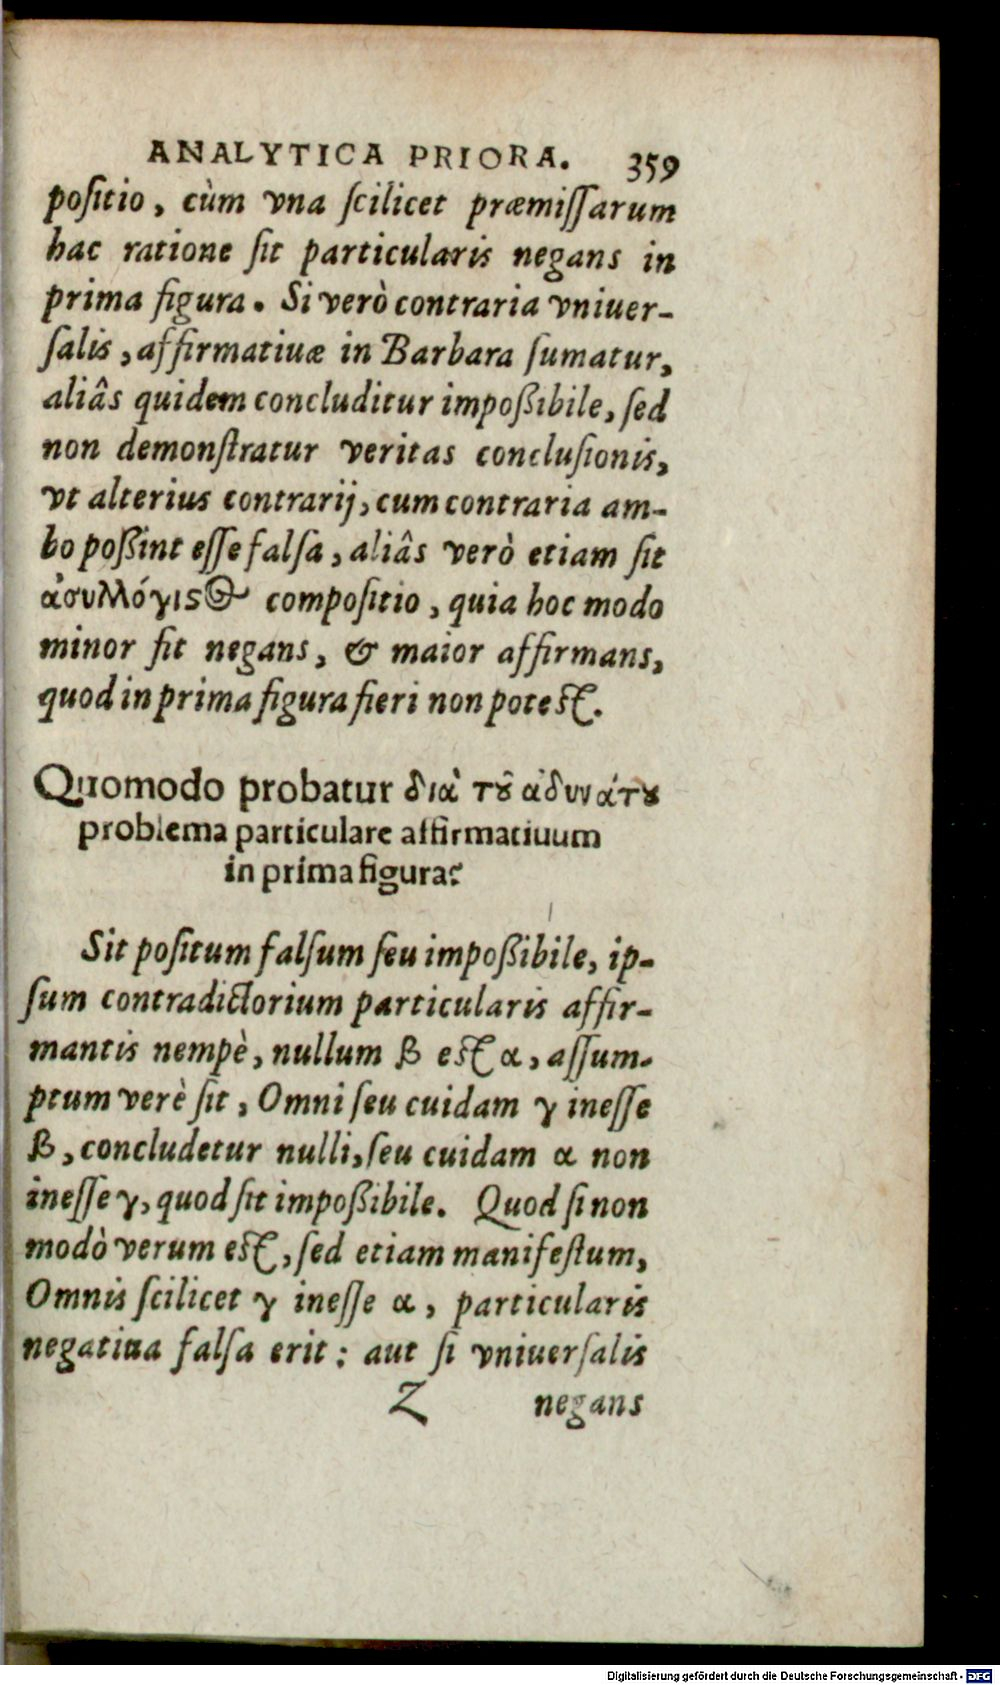 ANALYTICA PRIORA. 359
positio, cùm vna ſcilicet præmiſſarum
hac ratione ſit particularis negans in
prima figura. Si verò contraria vniuer-
ſalis, affirmatiuæ in Barbara ſumatur,
aliâs quidem concluditur impoßibile, ſed
non demonſtratur veritas concluſionis,
vt alterius contrarij, cum contraria am-
bo poßint eſſe falſa, aliâs verò etiam ſit
ἀσυλλόγιϛος compoſitio, quia hoc modo
minor fit negans, & maior affirmans,
quod in prima figura fieri non poteſt.
Quomodo probatur διὰ τȣ̃ ἀδυνάτȣ
problema particulare affirmatiuum
in prima figura?
Sit poſitum falſum ſeu impoßibile, ip-
ſum contradictorium particularis affir-
mantis nempè, nullum β eſt α, aſſum-
ptum verè ſit, Omni ſeu cuidam γ ineſſe
β, concludetur nulli, ſeu cuidam α non
ineſſe γ, quod ſit impoßibile. Quod ſi non
modò verum eſt, ſed etiam manifeſtum,
Omnis ſcilicet γ ineſſe α, particularis
negatiua falſa erit: aut ſi vniuerſalis
Z negans
Digitalisierung gefördert durch die Deutsche Forschungsgemeinschaft - DFG